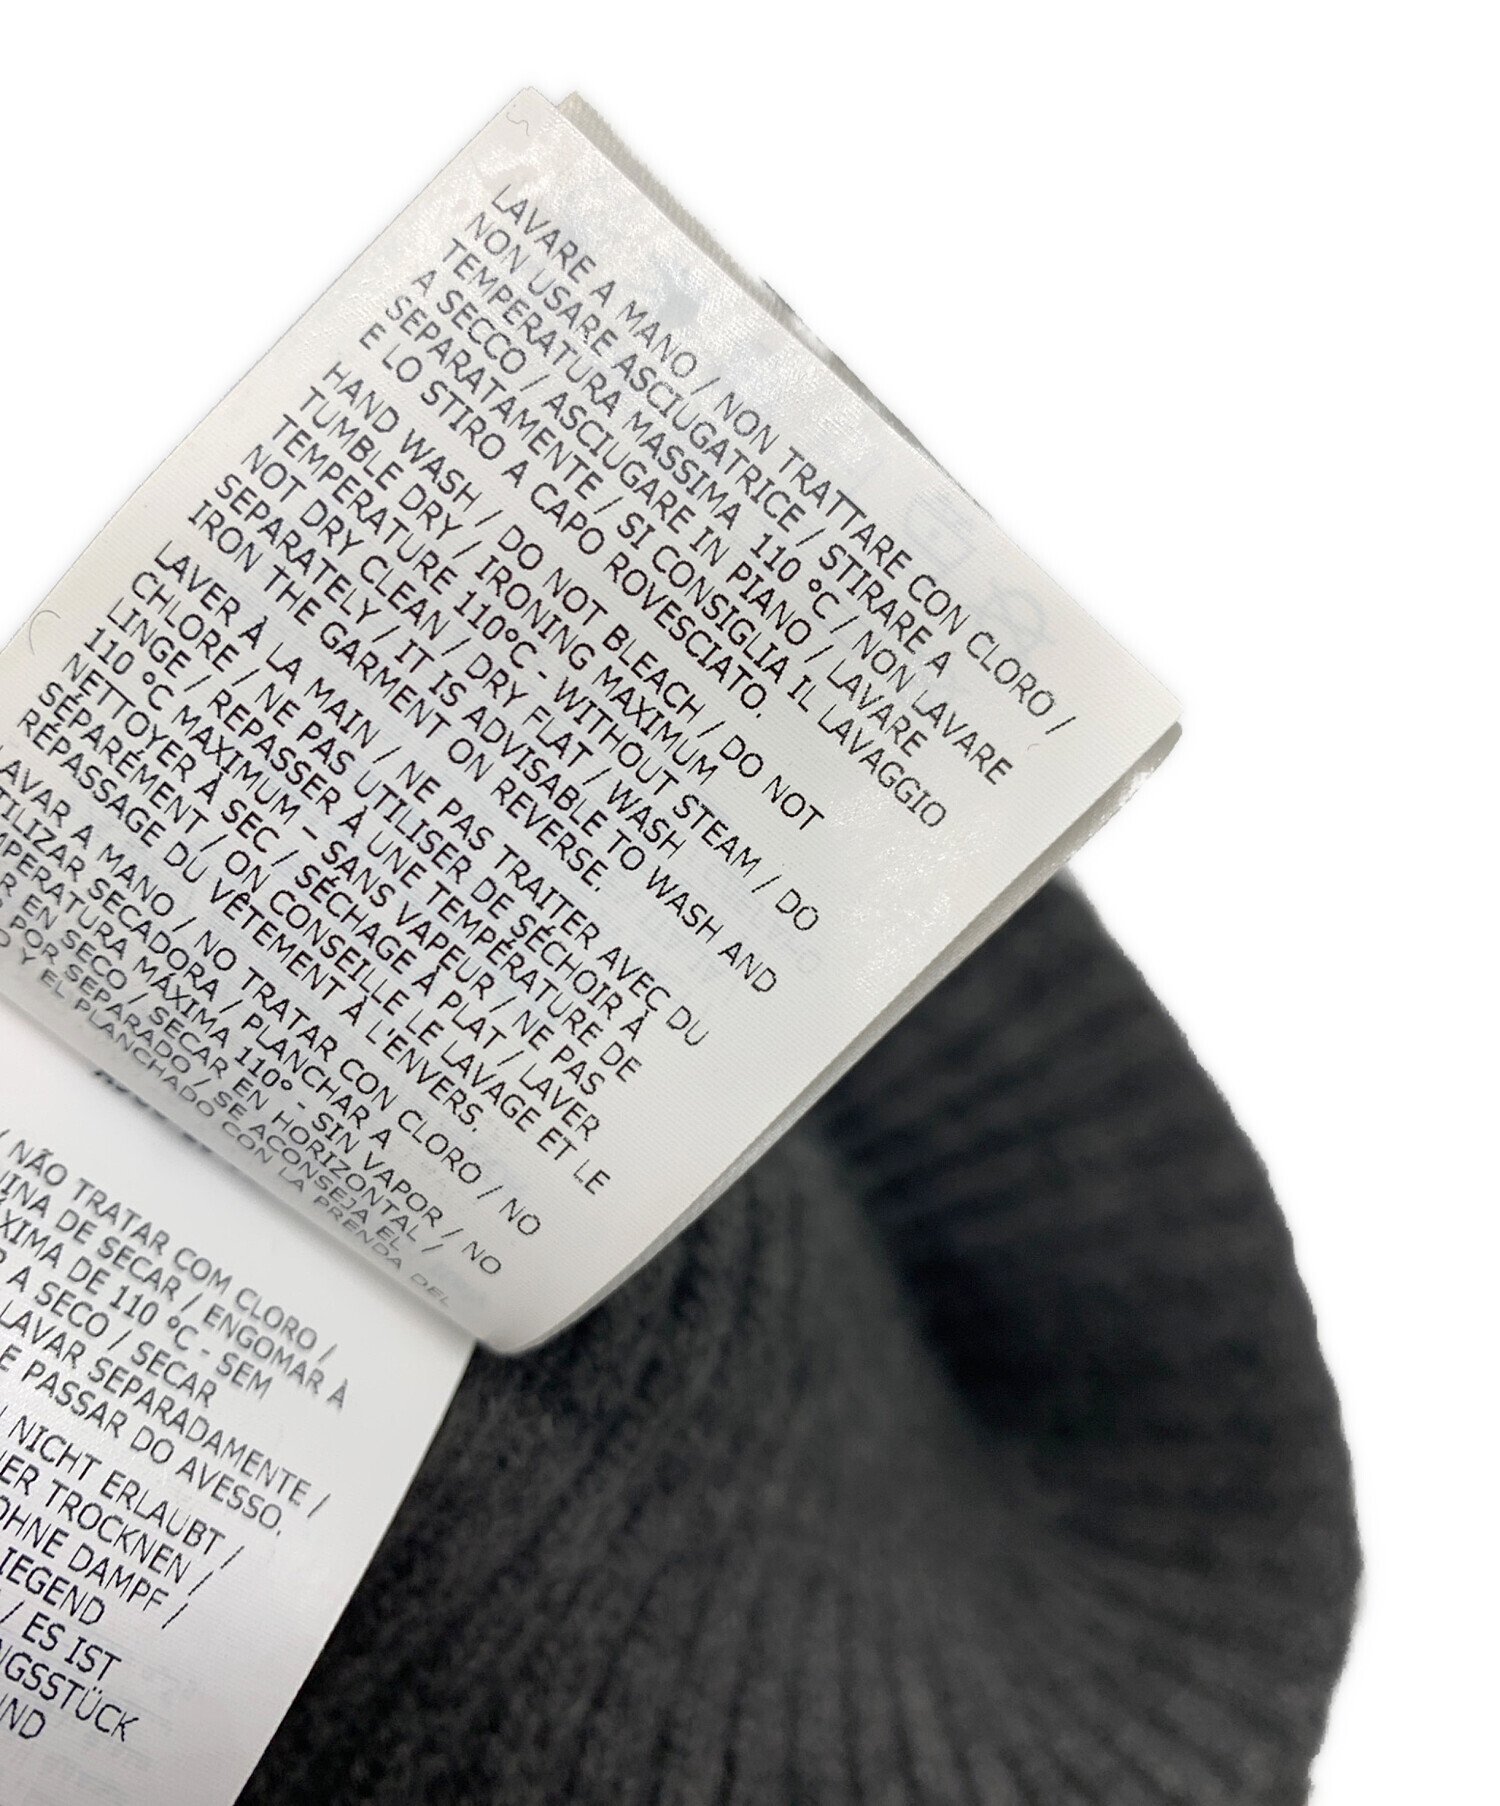 LAVARE A MANO / NON TRATTARE CON CLORO /
NON USARE ASCIUGATRICE / STIRARE A
TEMPERATURA MASSIMA 110 °C / NON LAVARE
A SECCO / ASCIUGARE IN PIANO / LAVARE
SEPARATAMENTE / SI CONSIGLIA IL LAVAGGIO
E LO STIRO A CAPO ROVESCIATO.
HAND WASH / DO NOT BLEACH / DO NOT
TUMBLE DRY / IRONING MAXIMUM
TEMPERATURE 110°C - WITHOUT STEAM / DO
NOT DRY CLEAN / DRY FLAT / WASH
SEPARATELY / IT IS ADVISABLE TO WASH AND
IRON THE GARMENT ON REVERSE.
LAVER À LA MAIN / NE PAS TRAITER AVEC DU
CHLORE / NE PAS UTILISER DE SÉCHOIR À
LINGE / REPASSER À UNE TEMPÉRATURE DE
110 °C MAXIMUM – SANS VAPEUR / NE PAS
NETTOYER À SEC / SÉCHAGE À PLAT / LAVER
SÉPARÉMENT / ON CONSEILLE LE LAVAGE ET LE
RÉPASSAGE DU VÊTEMENT À L'ENVERS.
AVAR A MANO / NO TRATAR CON CLORO / NO
TILIZAR SECADORA / PLANCHAR A
MPERATURA MÁXIMA 110° - SIN VAPOR / NO
R EN SECO / SECAR EN HORIZONTAL /
POR SEPARADO / SE ACONSEJA EL
O Y EL PLANCHADO CON LA PRENDA DEL
/ NÃO TRATAR COM CLORO /
INA DE SECAR / ENGOMAR À
XIMA DE 110 °C - SEM
R A SECO / SECAR
LAVAR SEPARADAMENTE /
E PASSAR DO AVESSO.
NICHT ERLAUBT /
ER TROCKNEN /
OHNE DAMPF /
IEGEND
/ ES IST
NGSSTÜCK
ND